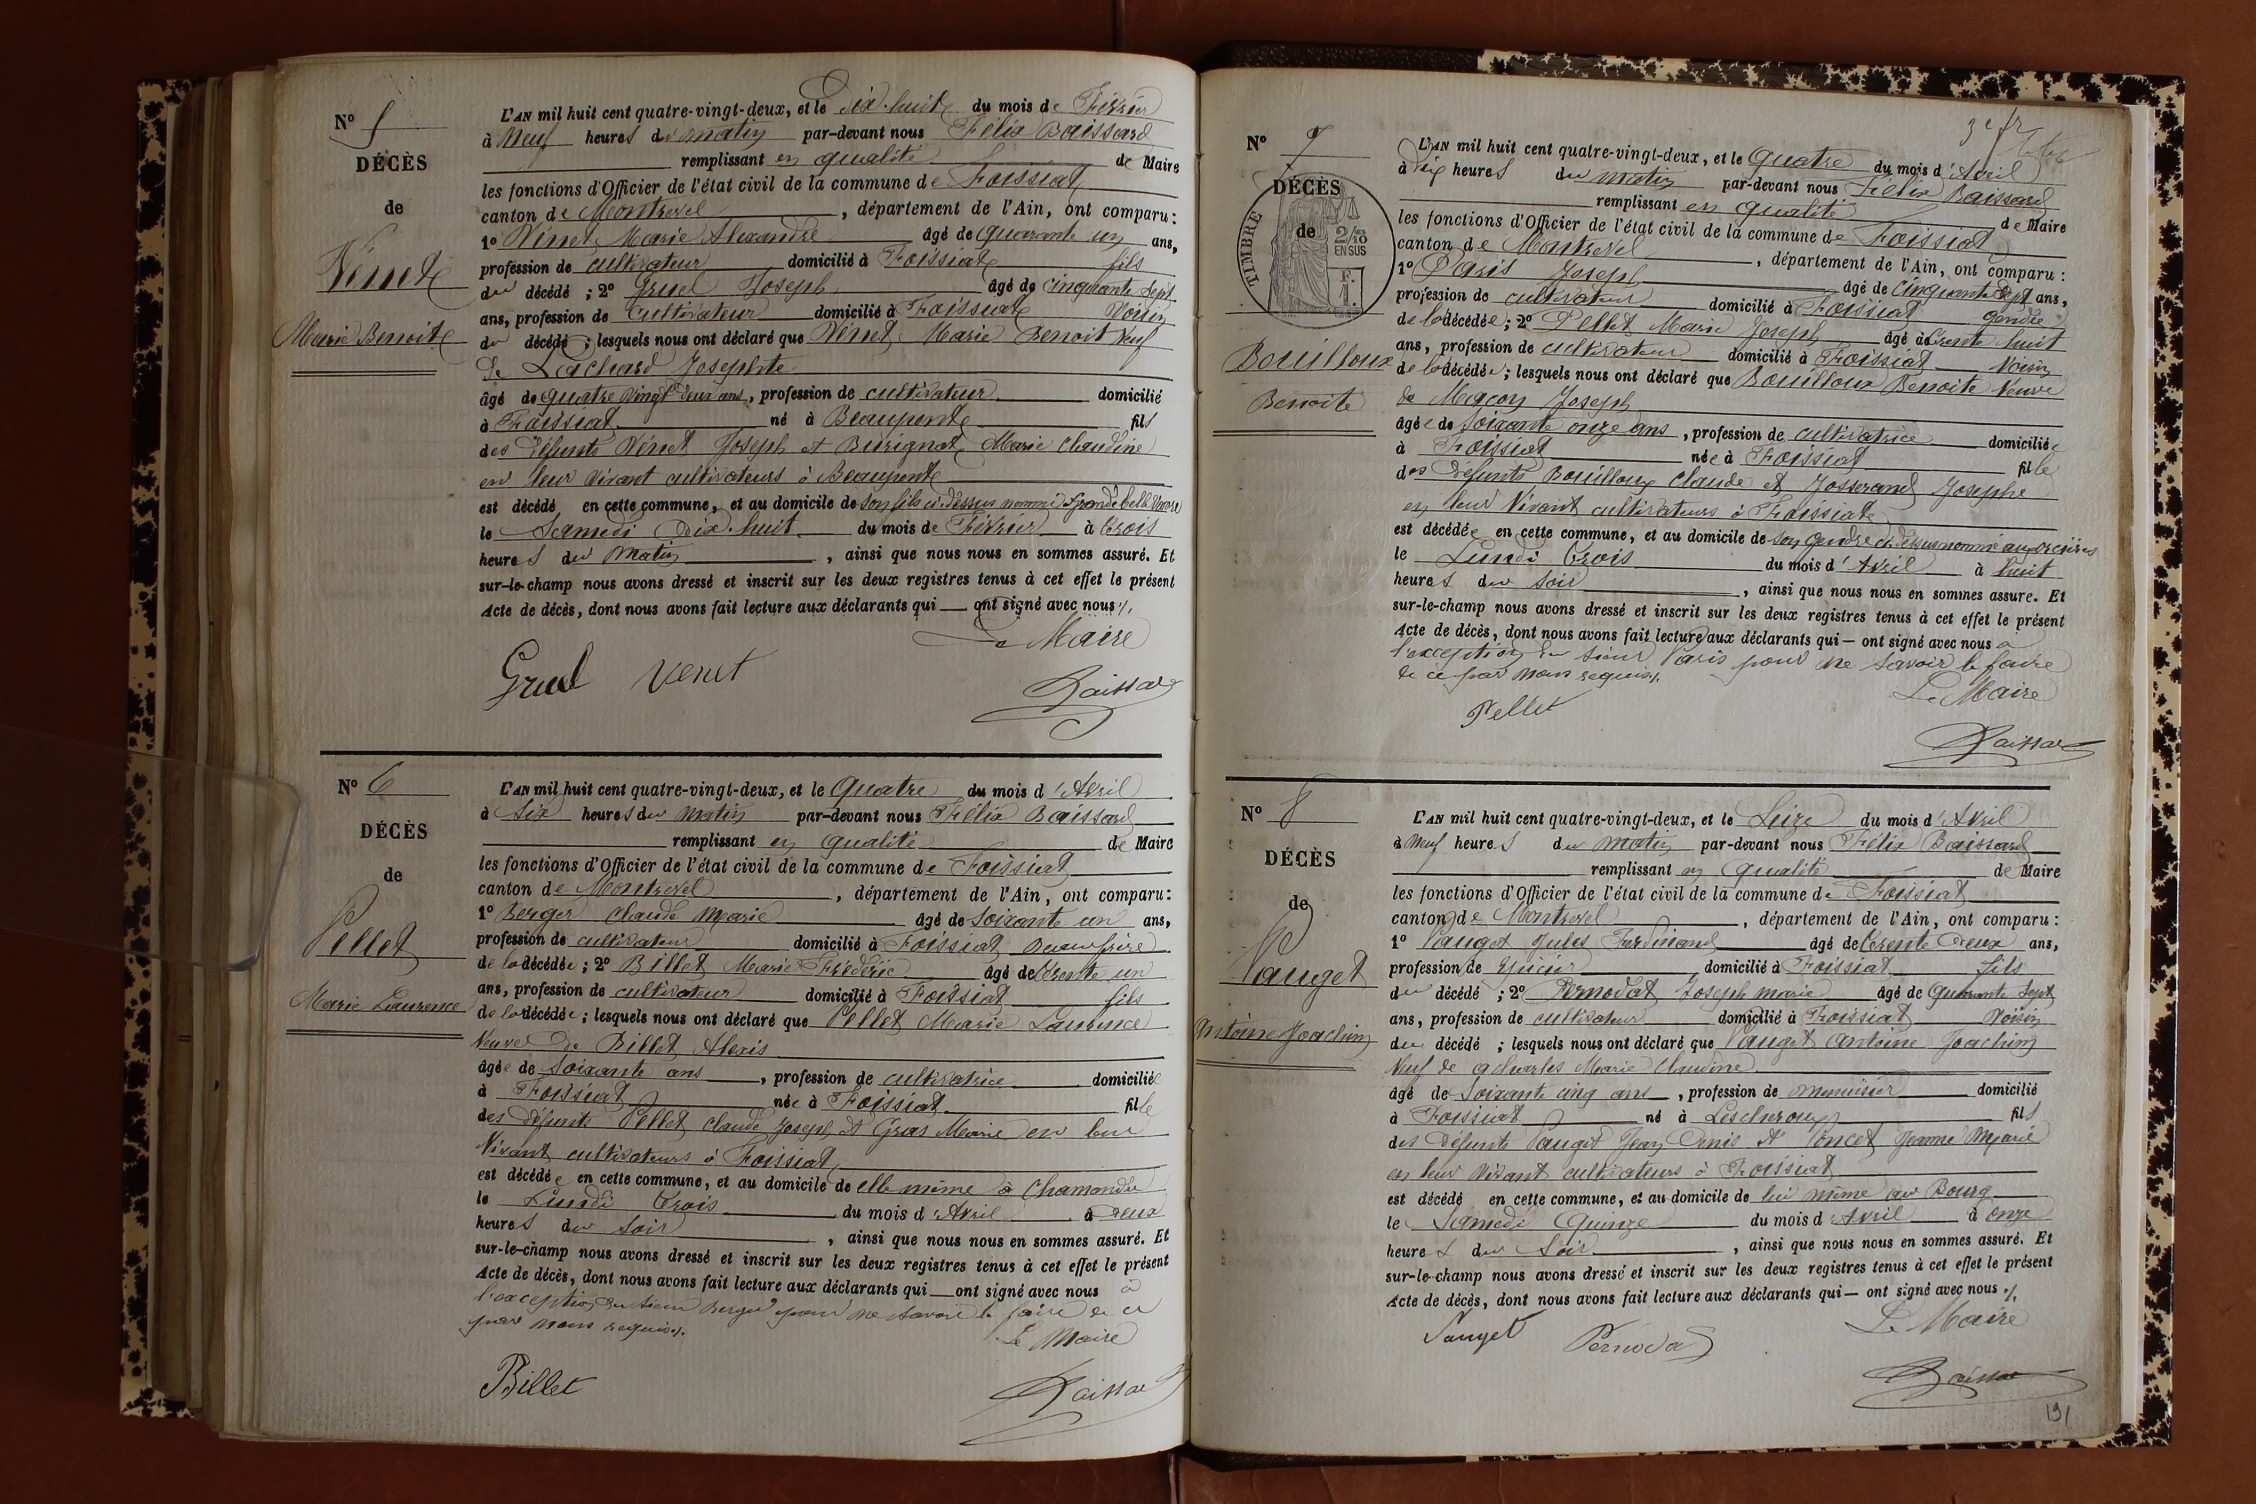 N° 5
DÉCÈS
de
Vénet
Marie Benoit
L'AN mil huit cent quatre-vingt-deux, et le Dix-huit du mois de Février
à Neuf heures du matin par-devant nous Félix Baissard
remplissant en qualité de Maire
les fonctions d'Officier de l'état civil de la commune de Foissiat
canton de Montrevel, département de l'Ain, ont comparu :
1° Vénet Marie Alexandre âgé de quarante un ans,
profession de cultivateur domicilié à Foissiat fils
du décédé ; 2° Gruel Joseph âgé de cinquante sept
ans, profession de cultivateur domicilié à Foissiat Voisin
du décédé ; lesquels nous ont déclaré que Vénet Marie Benoit Veuf
de Lachard Josephte
âgé de quatre vingt deux ans, profession de cultivateur domicilié
à Foissiat né à Beaupont fils
des défunts Vénet Joseph et Marie Claudine
en leur vivant cultivateurs à Beaupont
est décédé en cette commune, et au domicile de son fils ci-dessus nommé
le Samedi Dix-huit du mois de Février à trois
heures du matin, ainsi que nous nous en sommes assuré. Et
sur-le-champ nous avons dressé et inscrit sur les deux registres tenus à cet effet le présent
Acte de décès, dont nous avons fait lecture aux déclarants qui ont signé avec nous ./.
Le Maire
Gruel Venet
Baissard
N° 6
DÉCÈS
de
Pellet
Marie Laurence
L'AN mil huit cent quatre-vingt-deux, et le Quatre du mois d'Avril
à six heures du matin par-devant nous Félix Baissard
remplissant en qualité de Maire
les fonctions d'Officier de l'état civil de la commune de Foissiat
canton de Montrevel, département de l'Ain, ont comparu :
1° Berger Claude Marie âgé de soixante un ans,
profession de cultivateur domicilié à Foissiat Beau frère
de la décédée ; 2° Billet Marie Frédéric âgé de trente un
ans, profession de cultivateur domicilié à Foissiat fils
de la décédée ; lesquels nous ont déclaré que Pellet Marie Laurence
Veuve de Billet Alexis
âgée de soixante ans, profession de cultivatrice domiciliée
à Foissiat née à Foissiat fille
des défunts Pellet Claude Joseph et Gras Marie en leur
Vivant cultivateurs à Foissiat
est décédée en cette commune, et au domicile de elle même à Chamandre
le Lundi trois du mois d'Avril à Deux
heures du soir, ainsi que nous nous en sommes assuré. Et
sur-le-champ nous avons dressé et inscrit sur les deux registres tenus à cet effet le présent
Acte de décès, dont nous avons fait lecture aux déclarants qui ont signé avec nous à
l'exception du sieur Berger pour ne savoir le faire de ce
par nous requis ./.
Le Maire
Billet
Baissard
N° 7
DÉCÈS
de
TIMBRE
2/10 EN SUS
F. 1.
Bouilloux
Benoite
L'AN mil huit cent quatre-vingt-deux, et le Quatre du mois d'Avril
à Dix heures du matin par-devant nous Félix Baissard
remplissant en qualité de Maire
les fonctions d'Officier de l'état civil de la commune de Foissiat
canton de Montrevel, département de l'Ain, ont comparu :
1° Paris Joseph âgé de cinquante sept ans,
profession de cultivateur domicilié à Foissiat gendre
de la décédée ; 2° Pellet Marie Joseph âgé de trente huit
ans, profession de cultivateur domicilié à Foissiat Voisin
de la décédée ; lesquels nous ont déclaré que Bouilloux Benoite Veuve
de Macon Joseph
âgée de soixante onze ans, profession de cultivatrice domiciliée
à Foissiat née à Foissiat fille
des défunts Bouilloux Claude et Josserand Josephe
en leur Vivant cultivateurs à Foissiat
est décédée en cette commune, et au domicile de son gendre ci-dessus nommé
le Lundi trois du mois d'Avril à huit
heures du soir, ainsi que nous nous en sommes assuré. Et
sur-le-champ nous avons dressé et inscrit sur les deux registres tenus à cet effet le présent
Acte de décès, dont nous avons fait lecture aux déclarants qui — ont signé avec nous à
l'exception du sieur Paris pour ne savoir le faire
de ce par nous requis ./.
Le Maire
Pellet
Baissard
N° 8
DÉCÈS
de
Pauget
Antoine Joachim
L'AN mil huit cent quatre-vingt-deux, et le Seize du mois d'Avril
à Neuf heures du matin par-devant nous Félix Baissard
remplissant en qualité de Maire
les fonctions d'Officier de l'état civil de la commune de Foissiat
canton de Montrevel, département de l'Ain, ont comparu :
1° Pauget Jules Ferdinand âgé de trente deux ans,
profession de épicier domicilié à Foissiat fils
du décédé ; 2° Pernodat Joseph marie âgé de Quarante sept
ans, profession de cultivateur domicilié à Foissiat Voisin
du décédé ; lesquels nous ont déclaré que Pauget Antoine Joachim
Veuf de Marie Claudine
âgé de soixante cinq ans, profession de menuisier domicilié
à Foissiat né à Lescheroux fils
des défunts Pauget Jean Denis et Poncet Jeanne Marie
en leur vivant cultivateurs à Foissiat
est décédé en cette commune, et au domicile de lui même au Bourg
le Samedi Quinze du mois d'Avril à onze
heures du soir, ainsi que nous nous en sommes assuré. Et
sur-le-champ nous avons dressé et inscrit sur les deux registres tenus à cet effet le présent
Acte de décès, dont nous avons fait lecture aux déclarants qui — ont signé avec nous ./.
Le Maire
Pauget Pernodat
Baissard
191